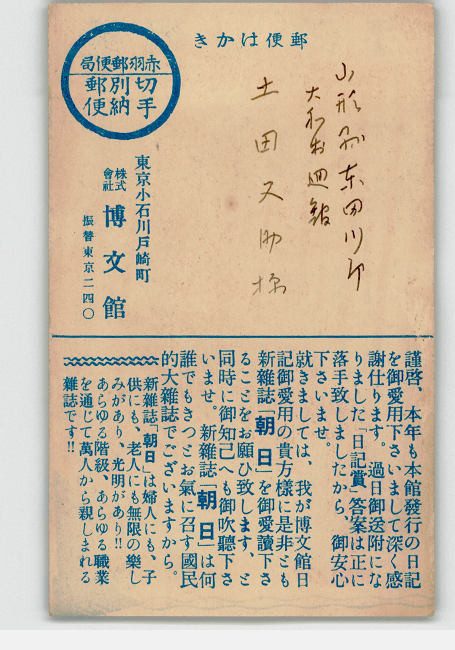 郵便はかき
赤羽郵便局
切手
別納
郵便
山形縣東田川郡
土田又助様
東京小石川戸崎町
株式
會社
博文館
振替東京二四〇
謹啓、本年も本館發行の日記
を御愛用下さいまして深く感
謝仕ります。過日御送附にな
りました「日記賞」答案は正に
落手致しましたから、御安心
下さいませ。
就きましては、我が博文館日
記御愛用の貴方樣に是非とも
新雜誌「朝日」を御愛讀下さ
ることをお願ひ致します、と
同時に御知己へも御吹聽下さ
いませ。新雜誌「朝日」は何
誰でもきつとお氣に召す國民
的大雜誌でございますから。
新雜誌「朝日」は婦人にも、子
供にも、老人にも無限の樂し
みがあり、光明があり!!
あらゆる階級、あらゆる職業
を通じて萬人から親しまれる
雜誌です!!